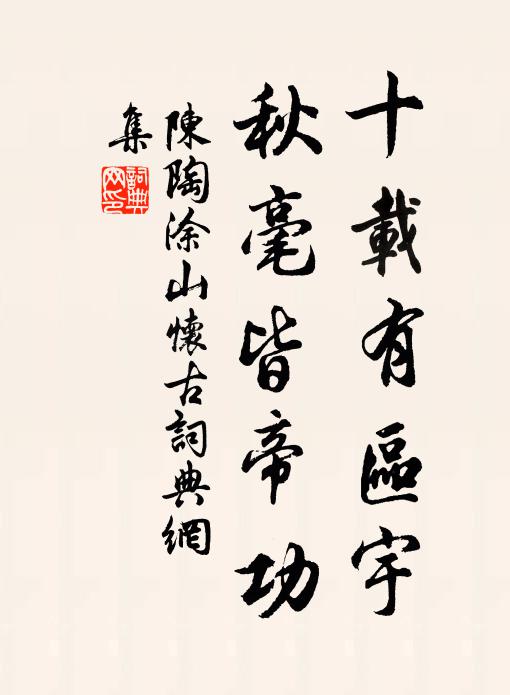 十載有區宇
秋毫皆帝功
陳陶涂山懷古詞典網
集
詞典
网印